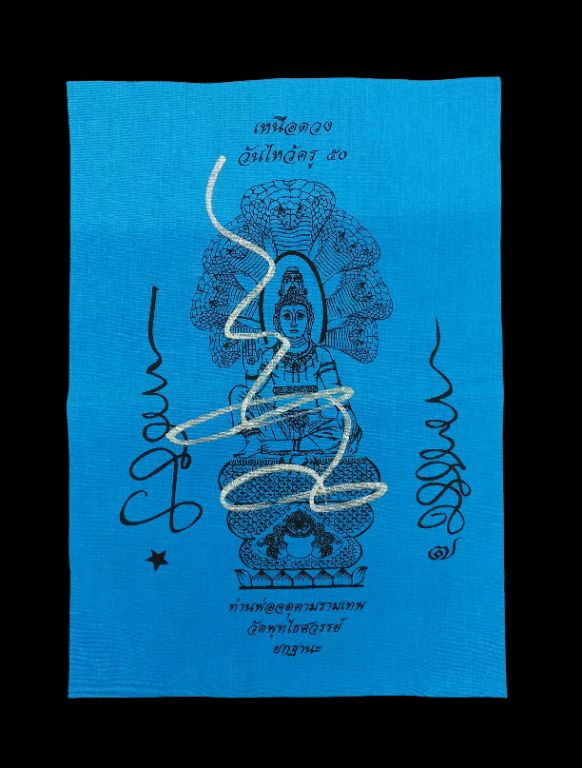 เหนือดวง
วันไหว้ครู ๕๐
ท่านพ่อจตุคามรามเทพ
วัดพุทไธศวรรย์
ยกฐานะ